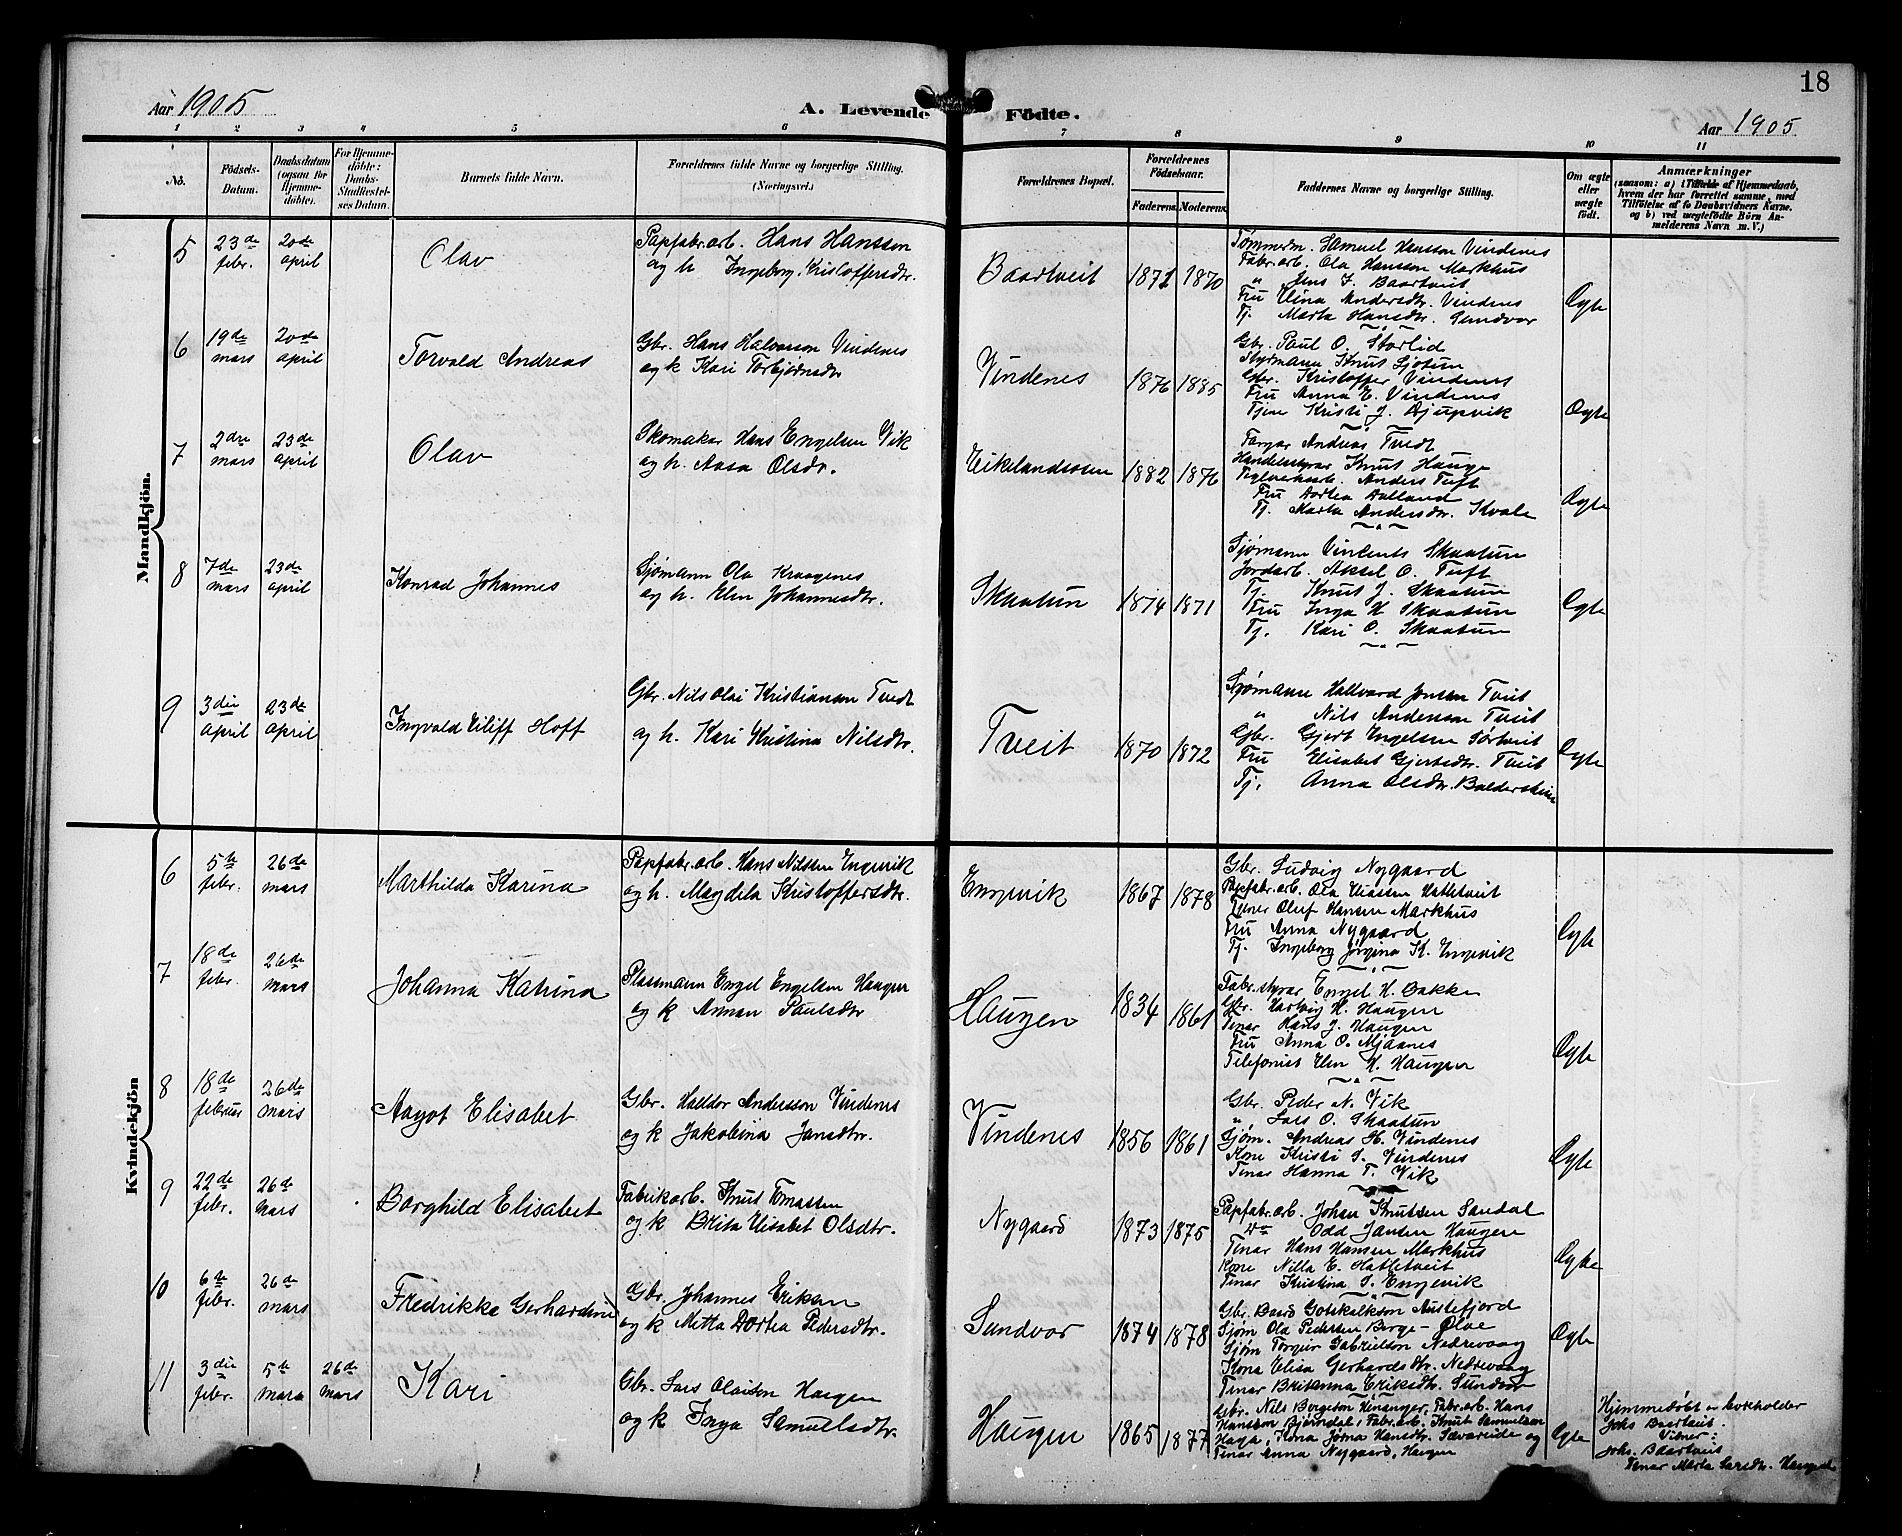 18
Aar 1905
A. Levende Födte.
Aar 1905
1 2 3 4 5 6 7 8 9 10 11
No.
Födsels-Datum.
Daabsdatum (ogsaa for Hjemme-döbte).
For Hjemme-döbte: Daabs-Stadfæstel-ses Datum.
Barnets fulde Navn.
Forældrenes fulde Navne og borgerlige Stilling. (Næringsvei.)
Forældrenes Bopæl.
Forældrenes Födselsaar.
Faderens. Moderens.
Faddernes Navne og borgerlige Stilling.
Om ægte eller uægte födt.
Anmærkninger
(saasom: a) i Tilfælde af Hjemmedaab,
hvem der har forrettet samme, med
Tilföielse af to Daabsvidners Navne.
og b) ved uægtefödte Börn An-
melderens Navn m. V.)
Mandkjön.
5 23de febr. 20de april Olav
Papfabr.arb. Hans Hansson
og h. Ingeborg Kristoffersdtr.
Baartveit 1871 1870
Tømmerm. Samuel Hansson Vindenes
Fabr.arb. Ola Hansson Markhus
" Jens J. Baartveit
Fru Elina Andersdtr. Vindenes
Tj. Marta Hansdtr. Sundvor
Ægte
6 19de mars 20de april Torvald Andreas
Gbr. Hans Halvorson Vindenes
og k Kari Torbjørnsdtr
Vindenes 1876 1885
Gbr. Paul O. Storlid
Styrmann Knut Sjotun
Gbr. Kristoffer Vindenes
Fru Anna E. Vindenes
Tjen Kristi J. Djupvik
Ægte
7 2dre mars 23de april Olav
Skomakar Hans Engelsen Vik
og h. Aasa Olsdr.
Eikelandsosen 1882 1876
Farger Andreas Tvedt
Handelsstyrar Knut Hauge
Teglverksarb. Anders Tuft
Fru Dortea Dalland
Tj. Marta Andersdtr. Kvale
Ægte
8 7de mars 23de april Konrad Johannes
Sjømann Ola Kraagenes
og h. Elen Johannesdtr.
Skaatun 1874 1871
Sjømann Vincents Skaatun
Jordarb. Aksel O. Tuft
Tj. Knut J. Skaatun
Fru Inga K Skaatun
Tj. Kari O. Skaatun
Ægte
9 3die april 23de april Ingvald Eiliff Hoff
Gbr. Nils Olai Kristiansen Tvedt
og h. Kari Kristina Nilsdtr.
Tveit 1870 1872
Sjømann Hallvard Jensen Tveit
" Nils Anderson Tveit
Gbr. Gjert Engelsen Sørtveit
Fru Elisabet Gjertsdtr. Tveit
Tj. Anna Olsdtr. Baldersheim
Ægte
Kvindekjön
6 5te febr. 26de mars Marthilda Karina
Papfabr.arb. Hans Nilssen Engevik
og h. Magdela Kristoffersdtr.
Engevik 1867 1878
Gbr. Ludvig Nygaard
Papfabr.arb. Ola Eliassen Hatletveit
Tjener Oluf Hansen Markhus
Fru Anna Nygaard
Tj. Ingeborg Jørgina K. Engevik
Ægte
7 18de febr. 26de mars Johanna Katrina
Plassmann Engel Engelsen Haugen
og k Annan Paulsdtr
Haugen 1834 1861
Fabr.styrar Engel H. Bakke
Gbr. Hartvig H. Haugen
Tenar Hans J. Haugen
Fru Anna O. Mjaanes
Telefonist Elen K. Haugen
Ægte
8 18de februar 26de mars Aagot Elisabet
Gbr. Halldor Andersson Vindenes
og k Jakobina Jansdtr.
Vindenes 1856 1861
Gbr. Peder N. Vik
" Lars O. Skaatun
Sjøm. Andreas H. Vindenes
Kone Kristi J. Vindenes
Tenar Hanna T. Vik
Ægte
9 22de febr. 26de mars Borghild Elisabet
Fabrikarb. Knut Tomassen
og k Brita Elisabet Olsdtr.
Nygaard 1873 1875
Papfabr.arb. Johan Knutsen Sandal
do Odd Jansen Haugen
Tenar Hans Hansen Markhus
Kone Nilla E. Hatletveit
Tenar Kristina J. Engevik
Ægte
10 6te febr. 26de mars Fredrikke Gerhardine
Gbr. Johannes Eriksen
og k Mitta Dortea Pedersdtr.
Sundvor 1874 1878
Gbr. Baard Gotskalkson Austefjord
Sjøm Ola Pedersen Berge - Ølve
Sjøm Torgeir Gabrielson Nedrevaag
Kona Elisa Gerhardsdtr. Nedrevaag
Tenar Britanna Eriksdtr. Sundvor
Ægte
11 3die febr. 5te mars 26de mars Kari
Gbr. Lars Olaison Haugen
og k Inga Samuelsdtr.
Haugen 1865 1877
Gbr. Nils Bergeson Henanger, Fabr.arb. Hans
Hansson Bjørndal, Fabr.arb. Knut Samuelson
Haga, Kona Jørna Hansdtr. Sævareide og
Tenar Anna Nygaard, Haugen
Ægte
Hjemmedøbt av kortholder
Johs Baartveit.
Vitner:
Johs. Baartveit
Tenar Marta Larsdtr. Haugen